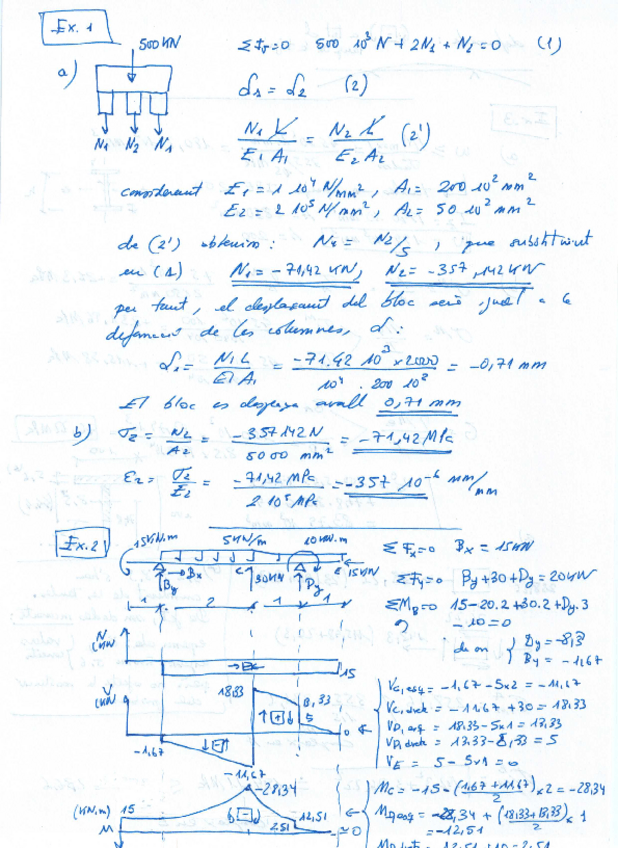 Ex. 1
500 KN
ΣFv=0 500 10³ N + 2N1 + N2 = 0 (1)
a)
δ1 = δ2 (2)
N1 N2 N1
N1 L / E1 A1 = N2 L / E2 A2 (2')
considerant E1 = 1 10⁴ N/mm², A1 = 200 10² mm²
E2 = 2 10⁵ N/mm², A2 = 50 10² mm²
de (2') obtenim: N1 = N2/5, que substituint
en (1) N1 = -71,42 KN, N2 = -357,142 KN
per tant, el desplaçament del bloc serà igual a la
deformació de les columnes, δ:
δ1 = N1 L / E1 A1 = -71.42 10³ x 2000 / 10⁴ . 200 10² = -0,71 mm
El bloc es desplaça avall 0,71 mm
b) σ2 = N2 / A2 = -357142 N / 5000 mm² = -71,42 MPa
ε2 = σ2 / E2 = -71,42 MPa / 2 10⁵ MPa = -357 10⁻⁶ mm/mm
Ex. 2
15 KN.m 5 KN/m 10 KN.m
Bx C E 15KN
By 30KN Dy
1 2 1 1
ΣFx=0 Bx = 15 KN
ΣFy=0 By+30+Dy = 20 KN
ΣMB=0 15-20.2+30.2+Dy.3
-10=0
d'on { Dy = -8,3
By = -1,67
N
(KN)
15
V
(KN)
18.33
13,33
5
0
-1,67
-11,67
VC,esq = -1,67 - 5x2 = -11,67
VC,dreta = -11.67 + 30 = 18.33
VD,esq = 18.33 - 5x1 = 13,33
VD,dreta = 13.33 - 8,33 = 5
VE = 5 - 5x1 = 0
-28,34
(KN.m) 15
M
12,51
2.51
≃0
MC = -15 - (1,67 + 11,67 / 2) x 2 = -28,34
MD,esq = -28,34 + (18,33 + 13.33) / 2 x 1
= -12,51
12,51 + 10 = 2.51